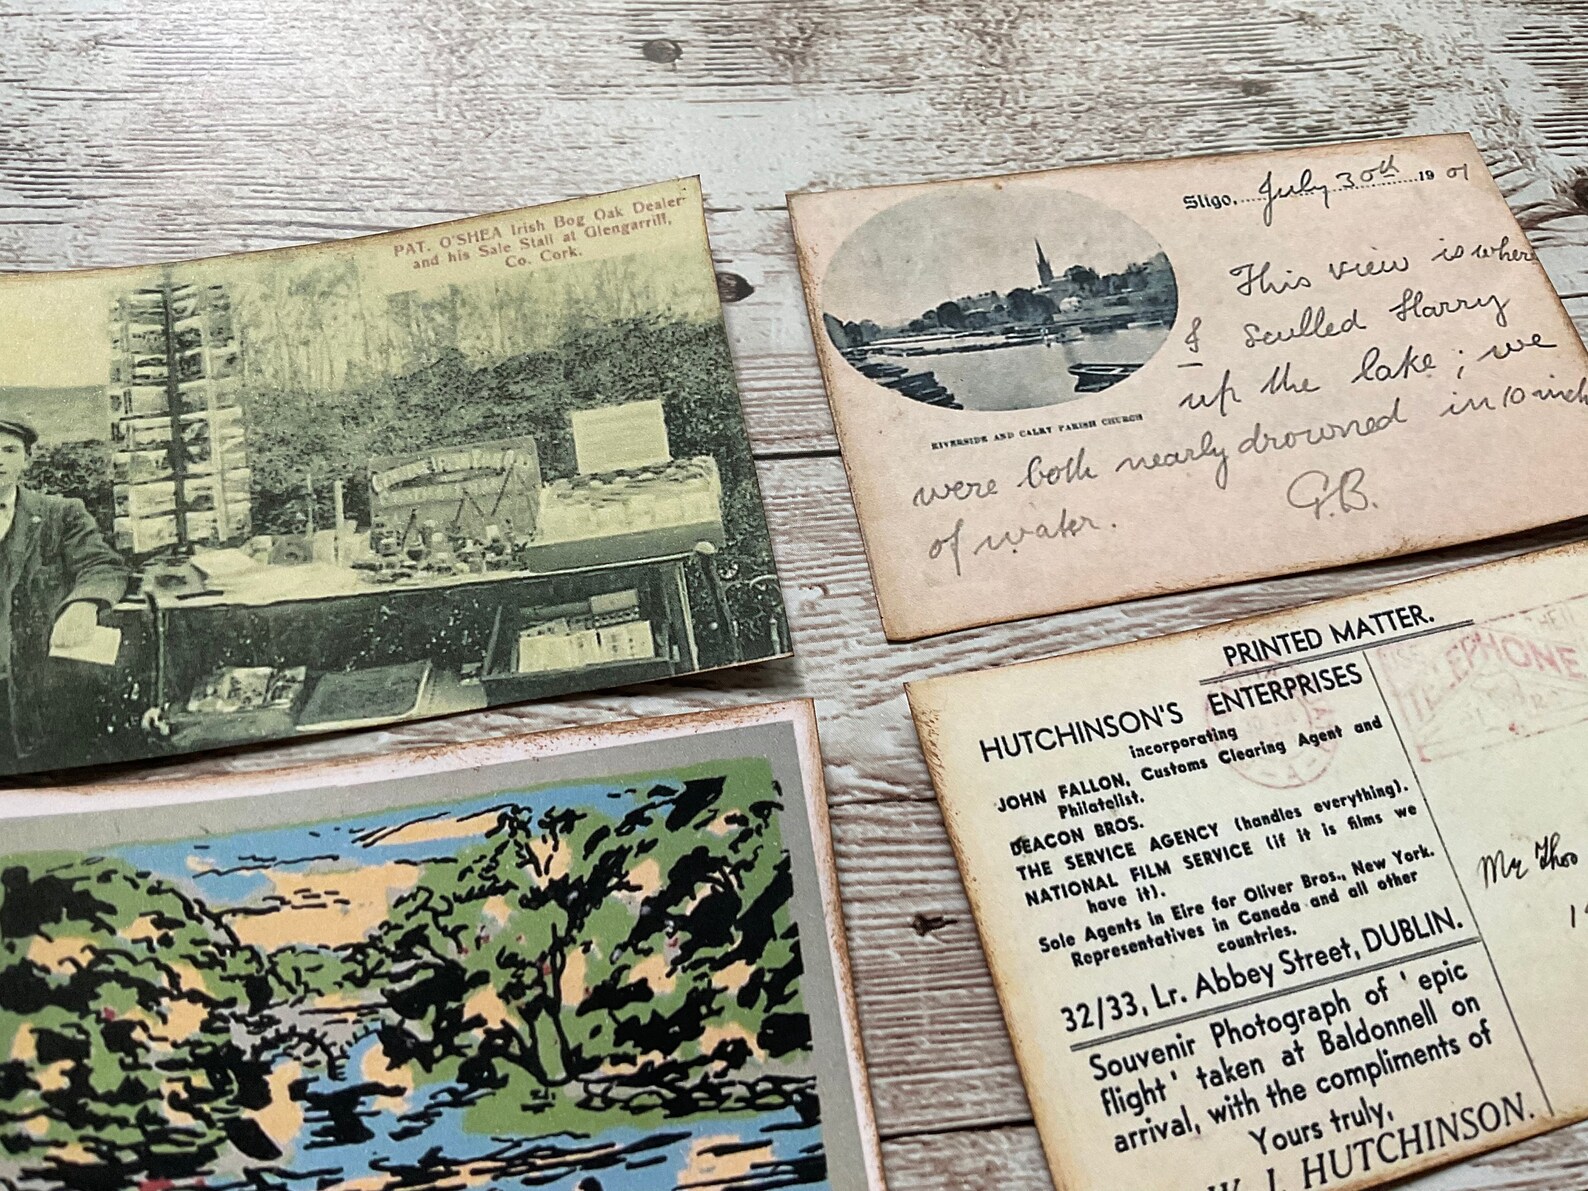 PAT. O'SHEA Irish Bog Oak Dealer
and his Sale Stall at Glengarriff,
Co. Cork.
Sligo, July 30th 1901
This view is where
I sculled Harry
up the lake; we
were both nearly drowned in 10 inch
of water.
G.B.
RIVERSIDE AND CALRY PARISH CHURCH
PRINTED MATTER.
HUTCHINSON'S ENTERPRISES
incorporating
JOHN FALLON, Customs Clearing Agent and
Philatelist.
DEACON BROS.
THE SERVICE AGENCY (handles everything).
NATIONAL FILM SERVICE (if it is films we
have it).
Sole Agents in Eire for Oliver Bros., New York.
Representatives in Canada and all other
countries.
32/33, Lr. Abbey Street, DUBLIN.
Souvenir Photograph of 'epic
flight' taken at Baldonnell on
arrival, with the compliments of
Yours truly,
W. J. HUTCHINSON.
TELEPHONE
Mr Thos